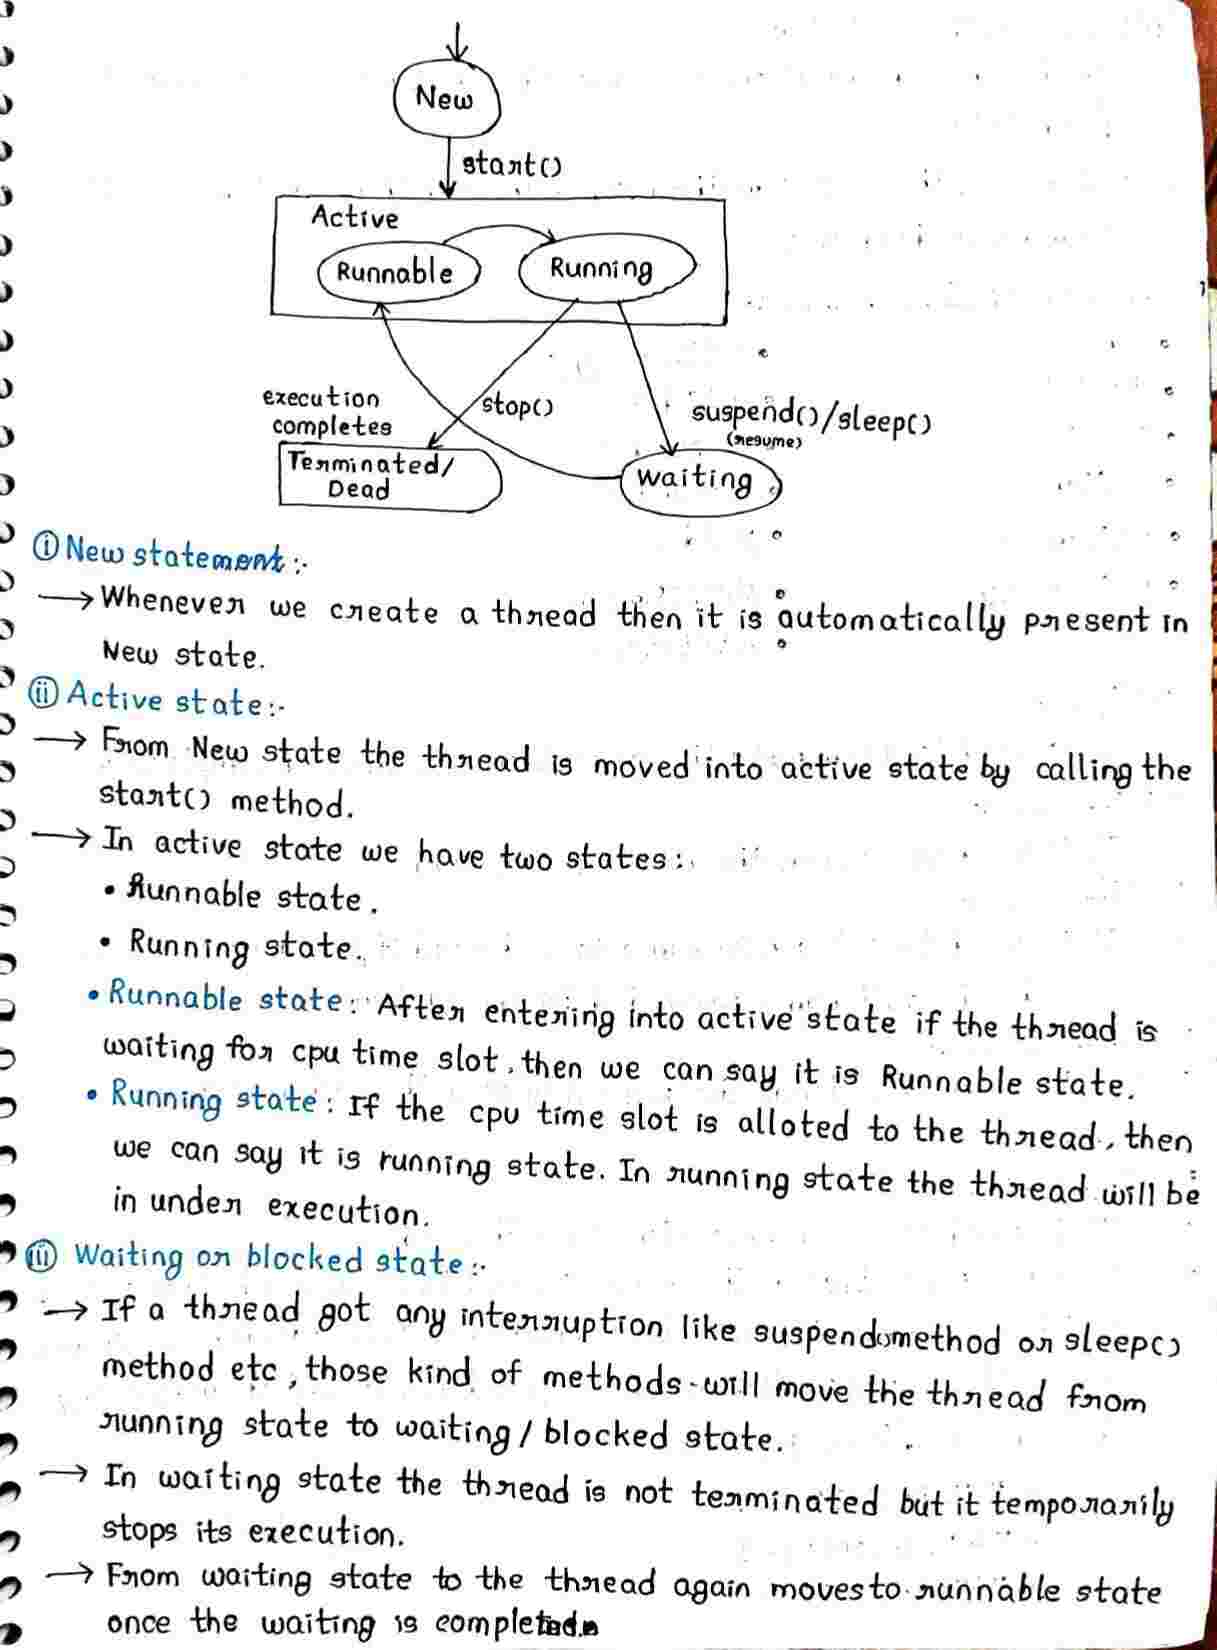 New
start()
Active
Runnable
Running
execution
completes
stop()
suspend()/sleep()
(resume)
Terminated/
Dead
waiting
(i) New statement:-
→ Whenever we create a thread then it is automatically present in
New state.
(ii) Active state:-
→ From New state the thread is moved into active state by calling the
start() method.
→ In active state we have two states:
• Runnable state.
• Running state.
• Runnable state: After entering into active state if the thread is
waiting for cpu time slot, then we can say it is Runnable state.
• Running state: If the cpu time slot is alloted to the thread, then
we can say it is running state. In running state the thread will be
in under execution.
(iii) Waiting or blocked state:-
→ If a thread got any interruption like suspend() method or sleep()
method etc, those kind of methods will move the thread from
running state to waiting/blocked state.
→ In waiting state the thread is not terminated but it temporarily
stops its execution.
→ From waiting state to the thread again moves to runnable state
once the waiting is completed.